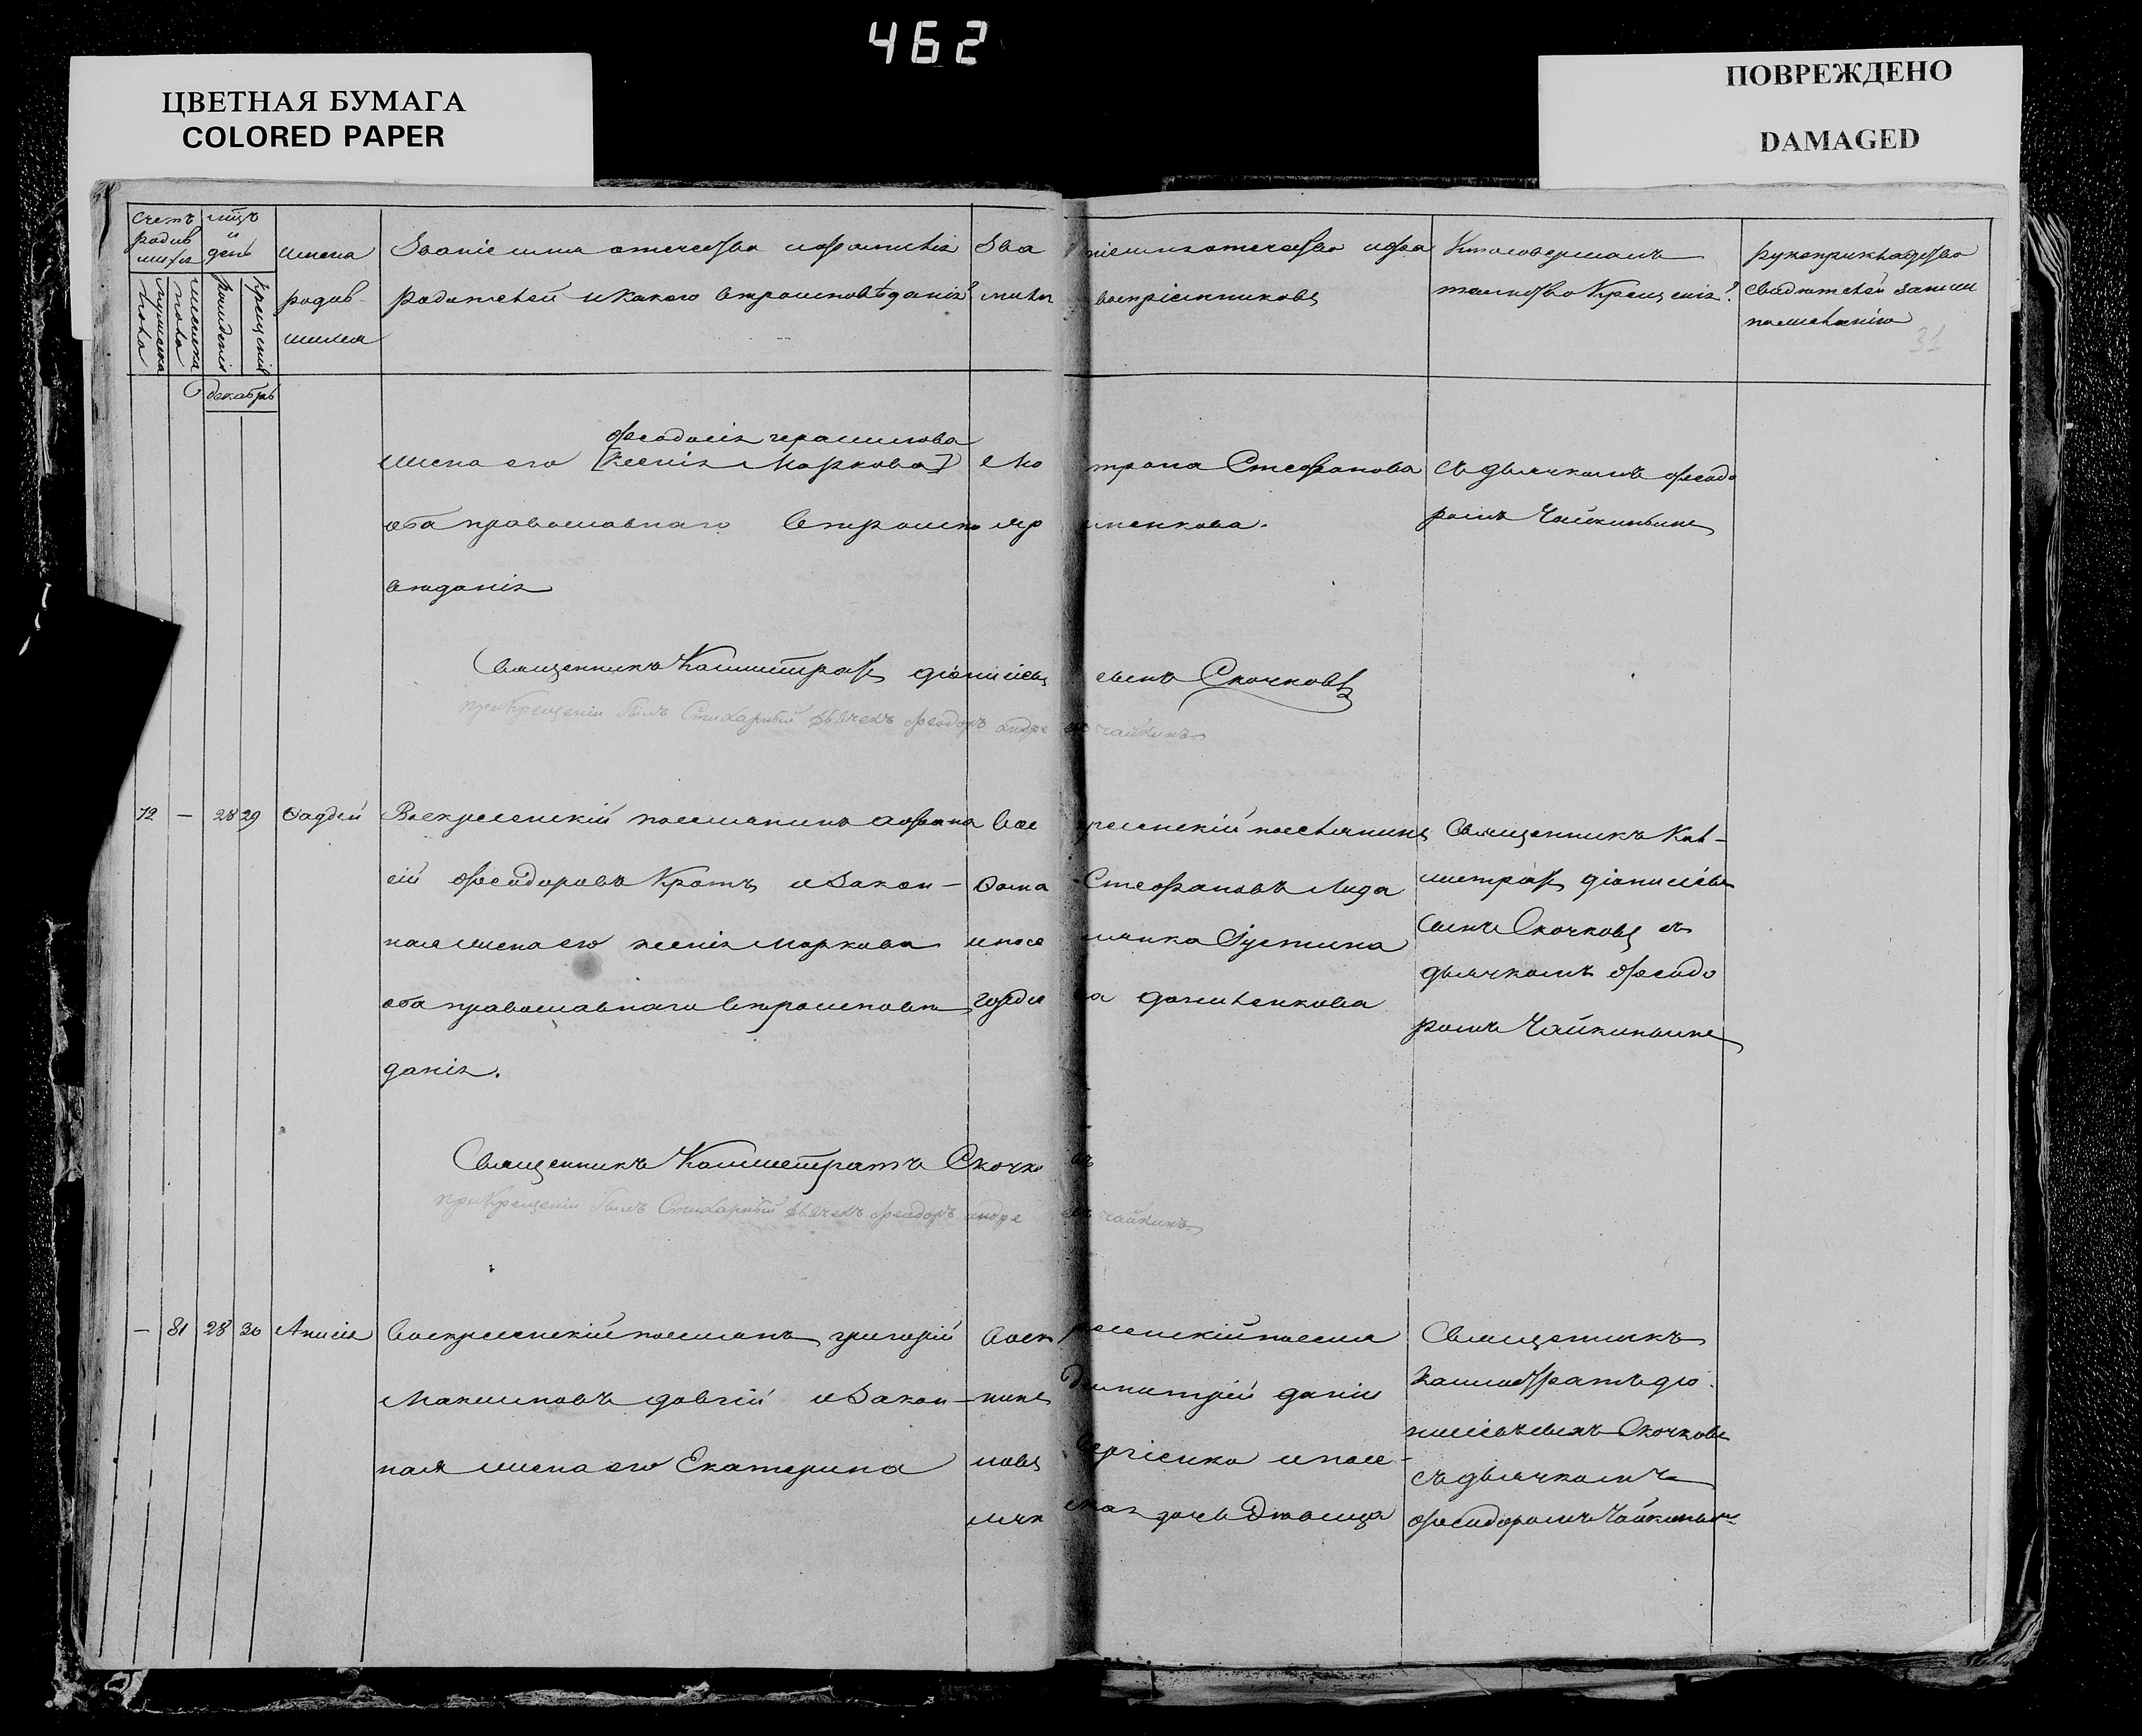 462
ЦВЕТНАЯ БУМАГА
COLORED PAPER
ПОВРЕЖДЕНО
DAMAGED
Счетъ родившихся
мужеска пола
женска пола
мѣсяцъ и день
рожденія
крещенія
имена родившихся
Званіе имя отчество и фамилія
родителей и какого вѣроисповѣданія?
Званіе имя отчество и фамилія
воспріемниковъ
Кто совершалъ
таинство Крещенія?
рукоприкладство
свидѣтелей записи
по желанію
31
Декабрь
феодосія герасимова
жена его [Ксенія Маркова]
оба православнаго вѣроиспо
вѣданія
трана Стефанова
съ дьячкомъ феодо
ромъ Чайкинымъ
Священникъ Каллистратъ діонисіевъ сынъ Скочковъ
при Крещеніи былъ Стихарный дьячекъ феодоръ андреевъ чайкинъ
72 — 28 29 Фаддей
Воскресенскій поселянинъ афана
сій феодоровъ Кратъ и закон-
ная жена его ксенія Маркова
оба православнаго вѣроисповѣ
данія.
Воскресенскій поселянинъ
Фома Стефановъ
и поселянка Іустина
Священникъ Кал-
листратъ діонисіевъ
сынъ Скочковъ съ
дьячкомъ феодо
ромъ Чайкинымъ
Священникъ Каллистратъ Скочковъ
при Крещеніи былъ Стихарный дьячекъ феодоръ андреевъ чайкинъ
— 81 28 30 Анисія
Воскресенскій поселянъ григорій
Максимовъ довгій и закон-
ная жена его Екатерина
Воскресенскій поселя
нинъ Димитрій дании
ловъ Сергіенко и посе-
лянская дочь Дѣвица
Священникъ
Каллистратъ діо
нисіевъ сынъ Скочковъ
съ дьячкомъ
феодоромъ Чайкинымъ